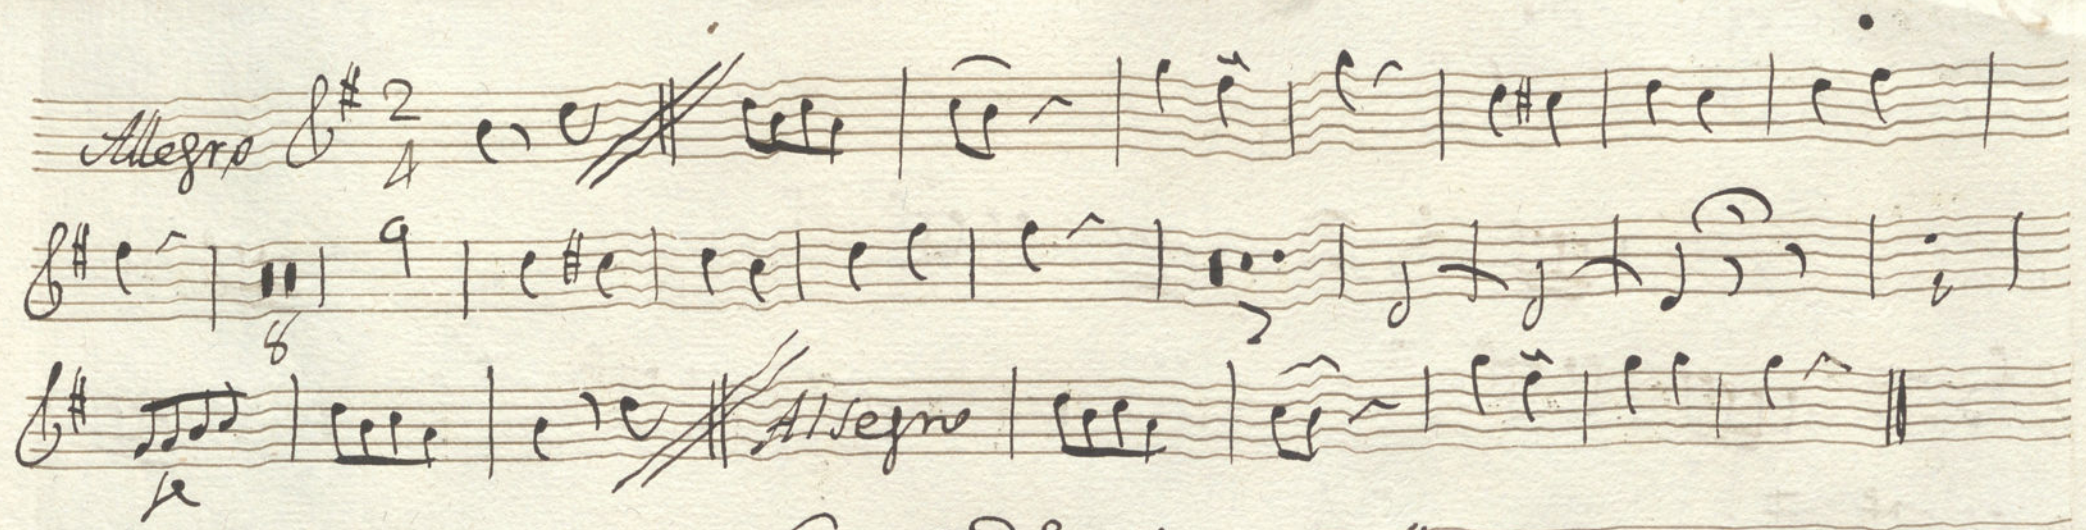 Allegro 2
4
8 7
Al segno